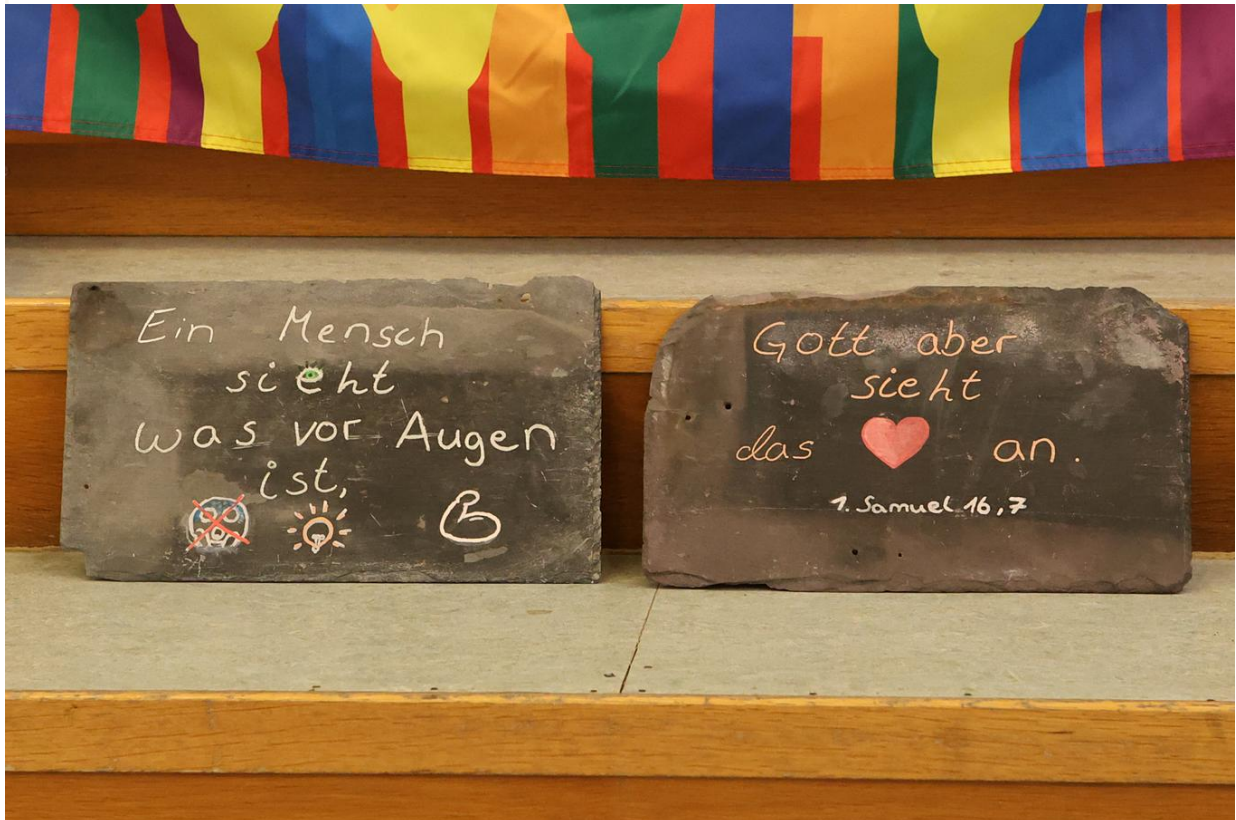 Ein Mensch
sieht
was vor Augen
ist,
Gott aber
sieht
das ❤ an.
1. Samuel 16,7